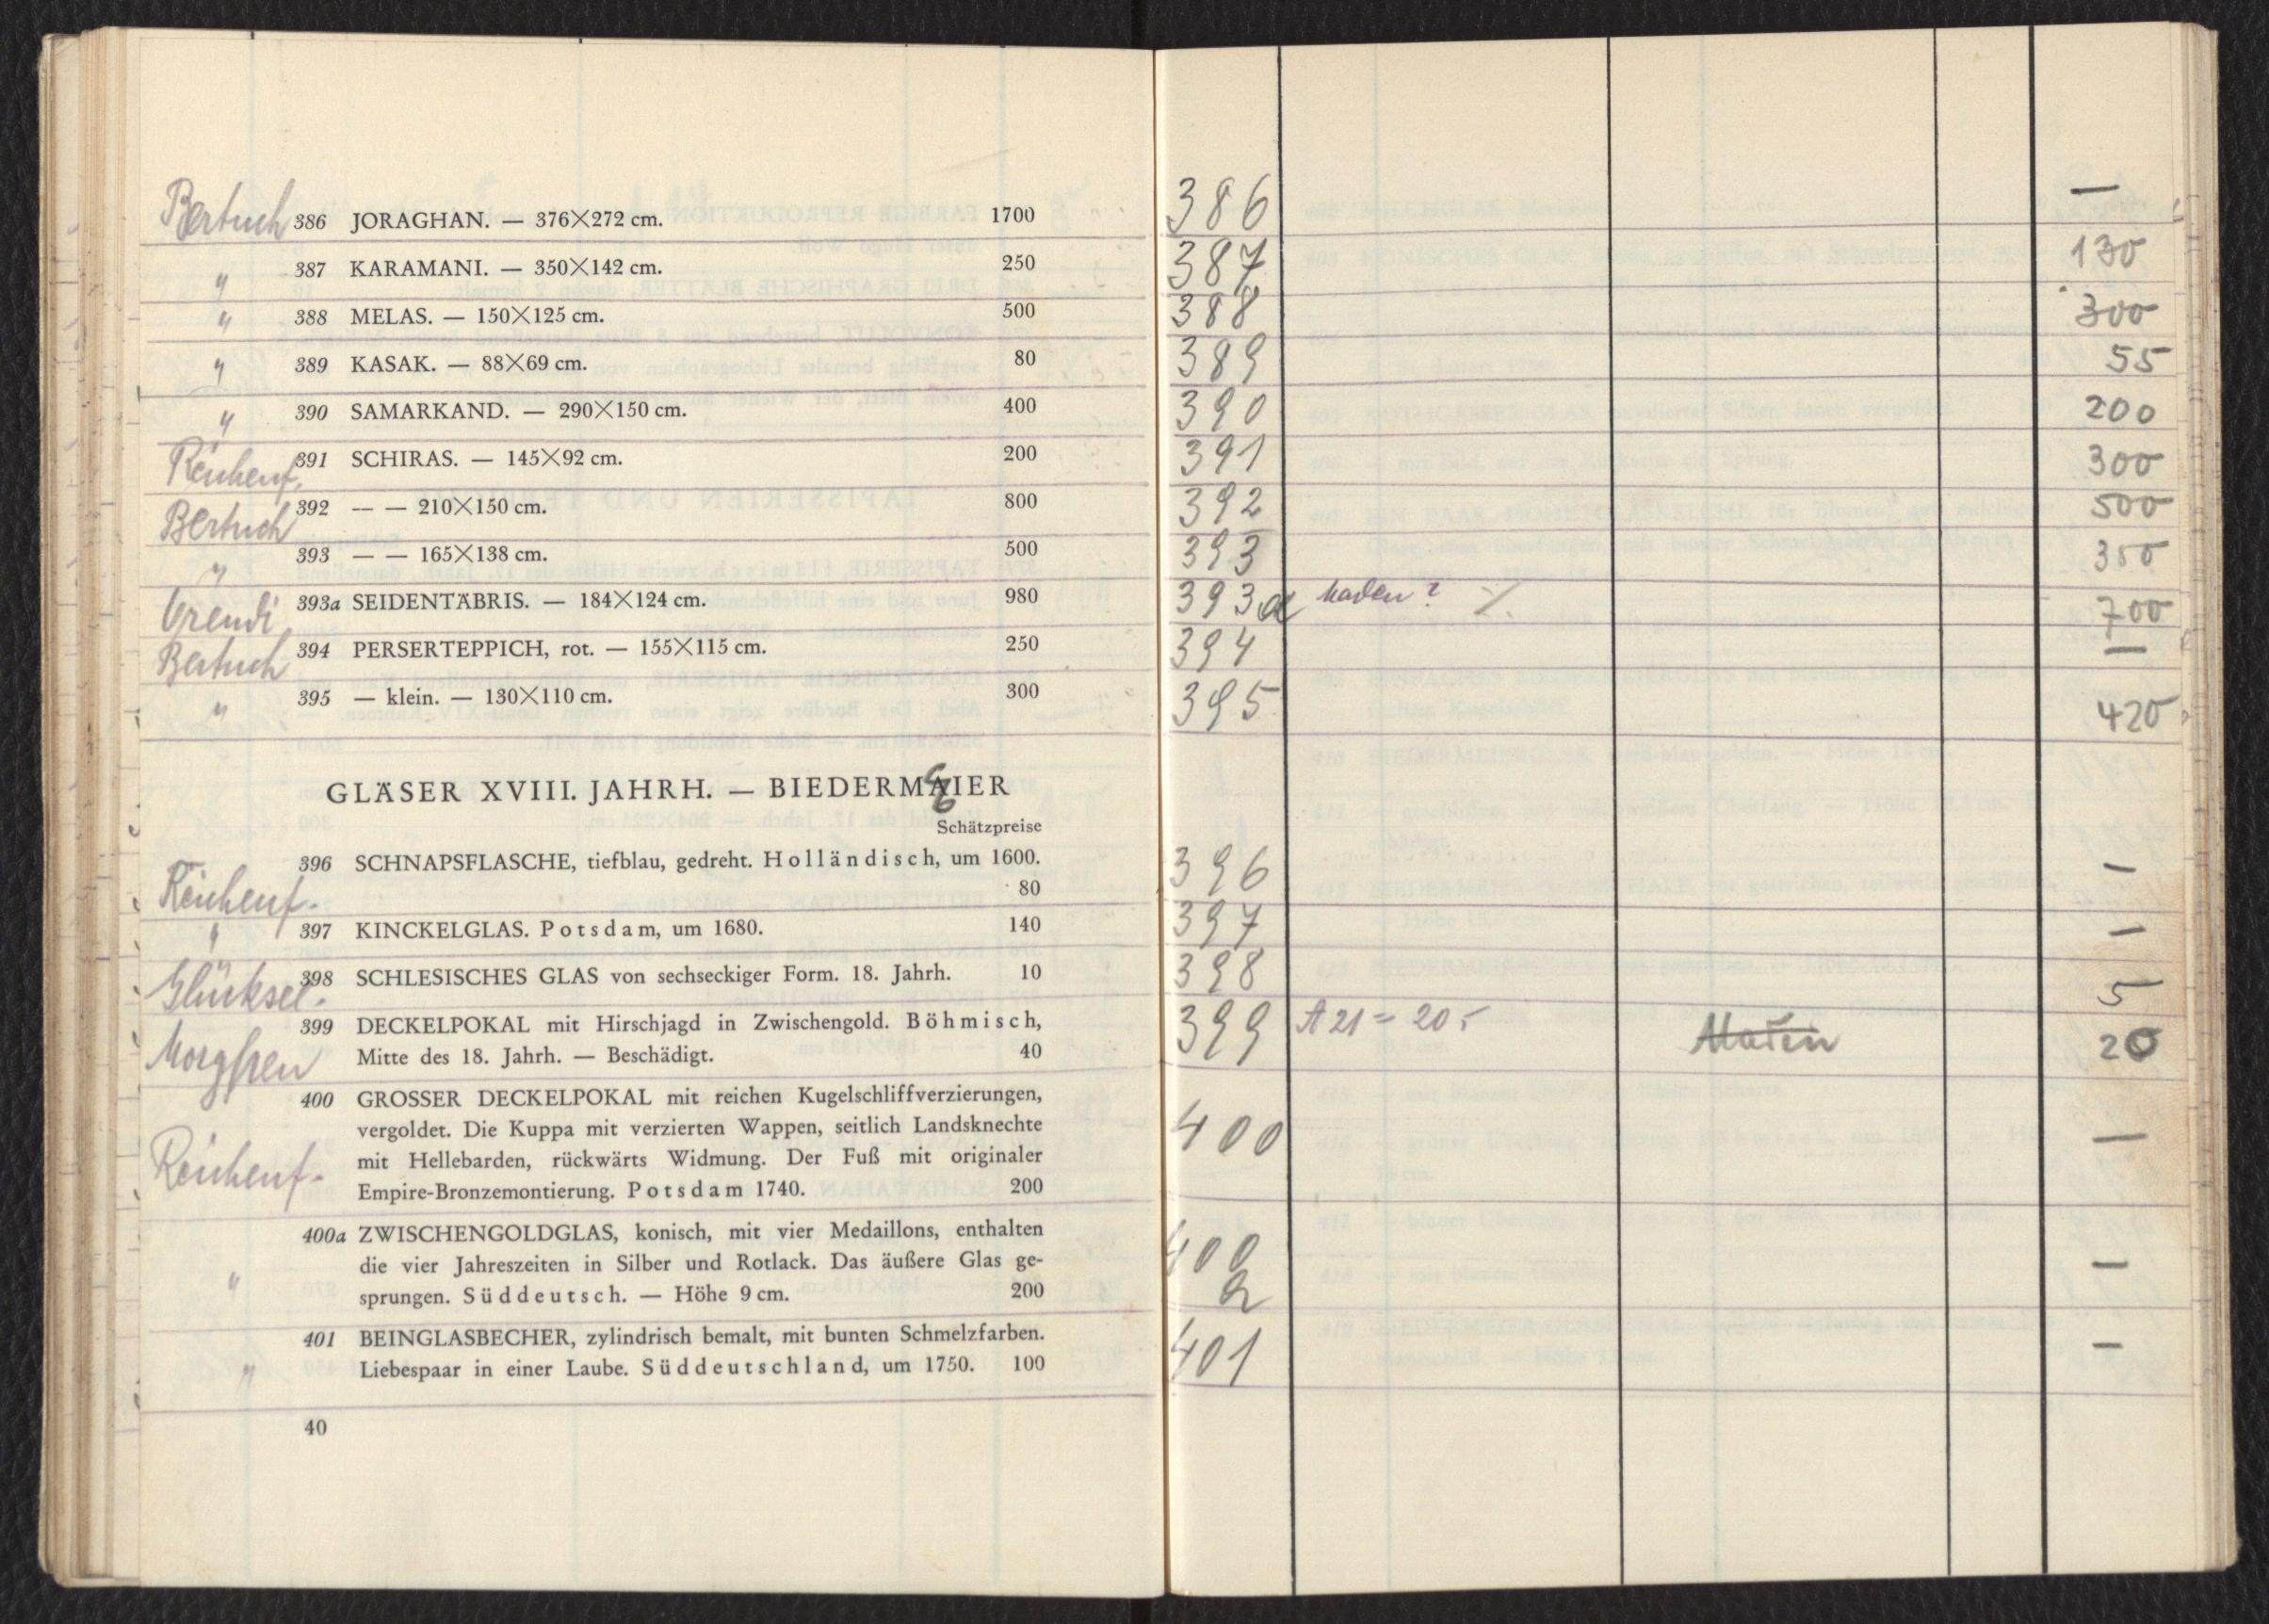 Bertuch 386 JORAGHAN. — 376×272 cm. 1700
" 387 KARAMANI. — 350×142 cm. 250
" 388 MELAS. — 150×125 cm. 500
" 389 KASAK. — 88×69 cm. 80
" 390 SAMARKAND. — 290×150 cm. 400
391 SCHIRAS. — 145×92 cm. 200
Bertuch 392 — — 210×150 cm. 800
" 393 — — 165×138 cm. 500
393a SEIDENTÄBRIS. — 184×124 cm. 980
Bertuch 394 PERSERTEPPICH, rot. — 155×115 cm. 250
" 395 — klein. — 130×110 cm. 300
GLÄSER XVIII. JAHRH. — BIEDERMAIER
Schätzpreise
396 SCHNAPSFLASCHE, tiefblau, gedreht. Holländisch, um 1600.
80
" 397 KINCKELGLAS. Potsdam, um 1680. 140
Glücksel. 398 SCHLESISCHES GLAS von sechseckiger Form. 18. Jahrh. 10
399 DECKELPOKAL mit Hirschjagd in Zwischengold. Böhmisch,
Mitte des 18. Jahrh. — Beschädigt. 40
400 GROSSER DECKELPOKAL mit reichen Kugelschliffverzierungen,
vergoldet. Die Kuppa mit verzierten Wappen, seitlich Landsknechte
mit Hellebarden, rückwärts Widmung. Der Fuß mit originaler
Empire-Bronzemontierung. Potsdam 1740. 200
400a ZWISCHENGOLDGLAS, konisch, mit vier Medaillons, enthalten
die vier Jahreszeiten in Silber und Rotlack. Das äußere Glas ge-
" sprungen. Süddeutsch. — Höhe 9 cm. 200
401 BEINGLASBECHER, zylindrisch bemalt, mit bunten Schmelzfarben.
" Liebespaar in einer Laube. Süddeutschland, um 1750. 100
40
386 —
387 130
388 300
389 55
390 200
391 300
392 500
393 350
393a 700
394 —
395 420
396 —
397 —
398 5
399 A 21 = 20.- 20
400 —
400a —
401 —